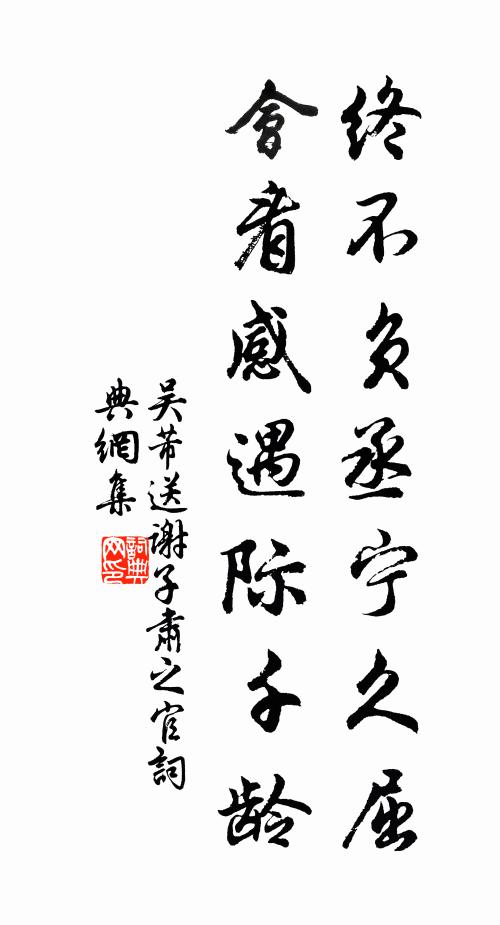 终不负丞宁久屈
會看感遇际千龄
吴芾送谢子肃之官詞
典網集
詞典
网印